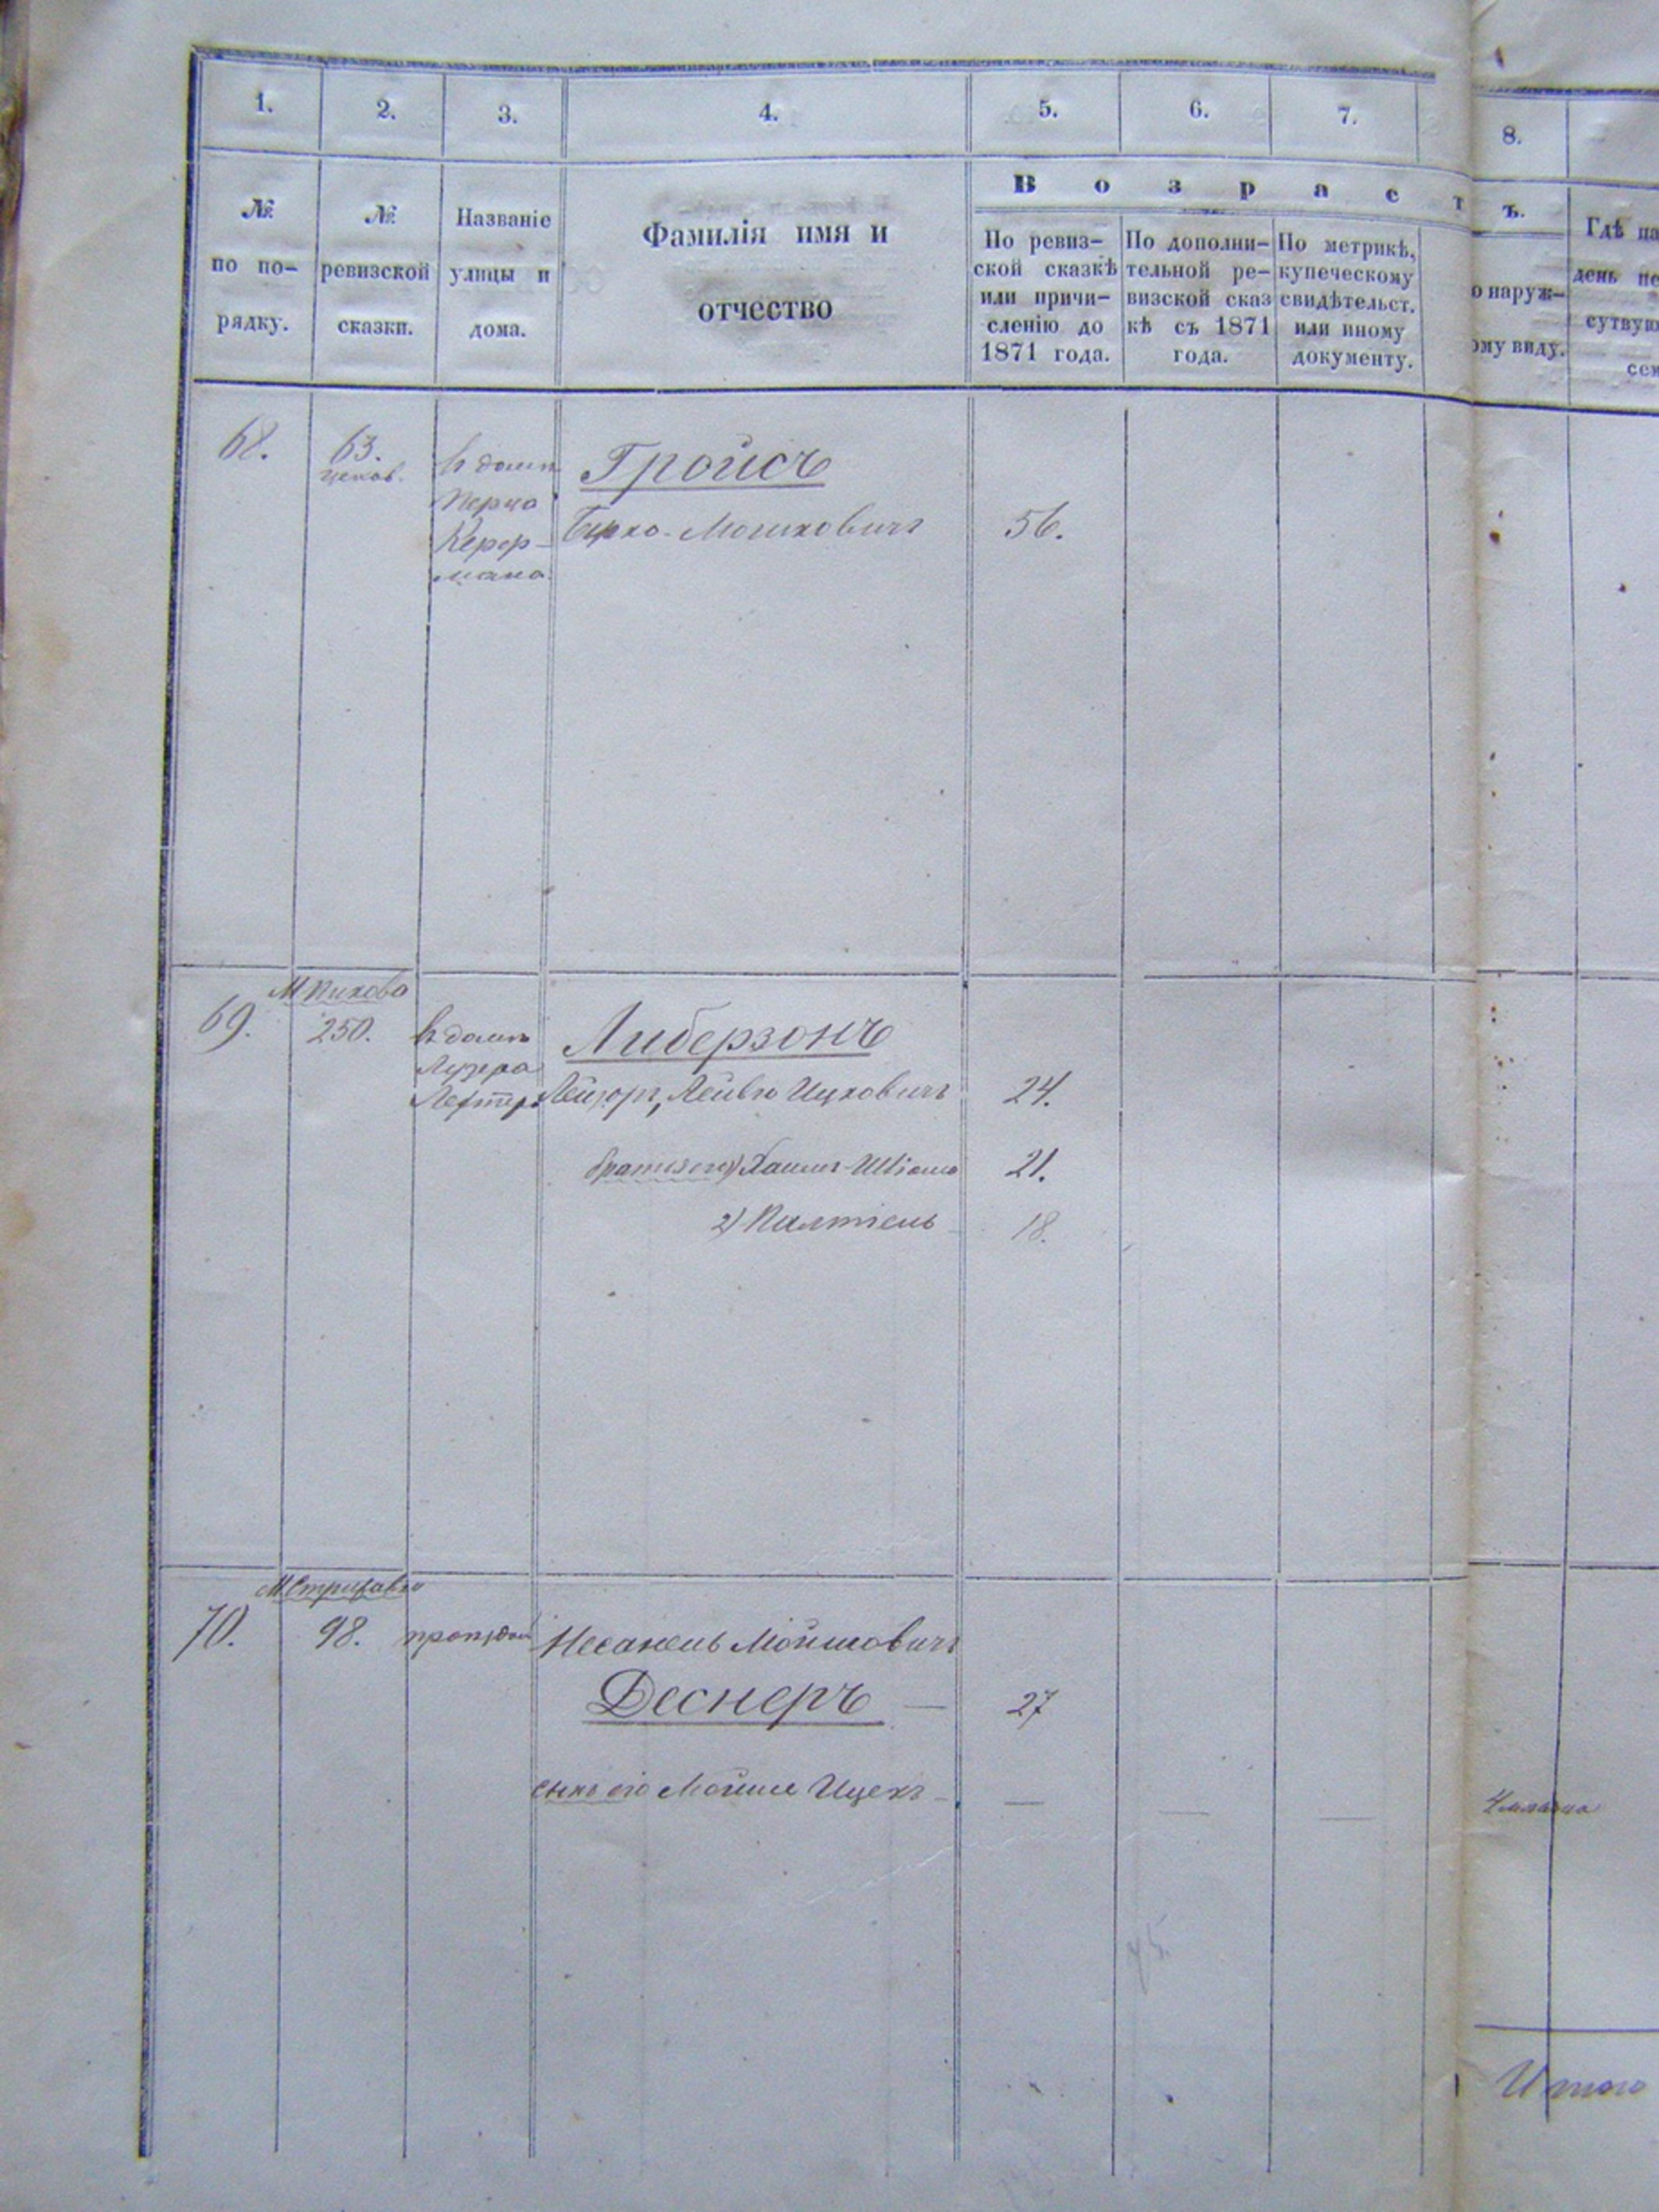 1. 2. 3. 4. 5. 6. 7. 8.
№ по по-рядку.
№ ревизской сказки.
Названіе улицы и дома.
Фамилія имя и отчество
В о з р а с т ъ.
По ревиз-
ской сказкѣ
или причи-
сленію до
1871 года.
По дополни-
тельной ре-
визской сказ
кѣ съ 1871
года.
По метрикѣ,
купеческому
свидѣтельст.
или иному
документу.
о наруж-
ому виду.
Гдѣ на
день пе
сутвую
сем
68. 63. въ домѣ Гройсъ
Перца
Берко-Мошковичъ 56.
Керер-
мана
М Пикова
69. 250. въ домѣ Либерзонъ
Лузера
Лейзоръ, Лейвю Ицковичъ 24.
братья его 1) Хаимъ-Шіома 21.
2) Палтіель 18.
М Стрижавка
70. 98. Несанель Мойшовичъ
Деснеръ — 27
сынъ его Мойше Ицекъ — — — —
Итого